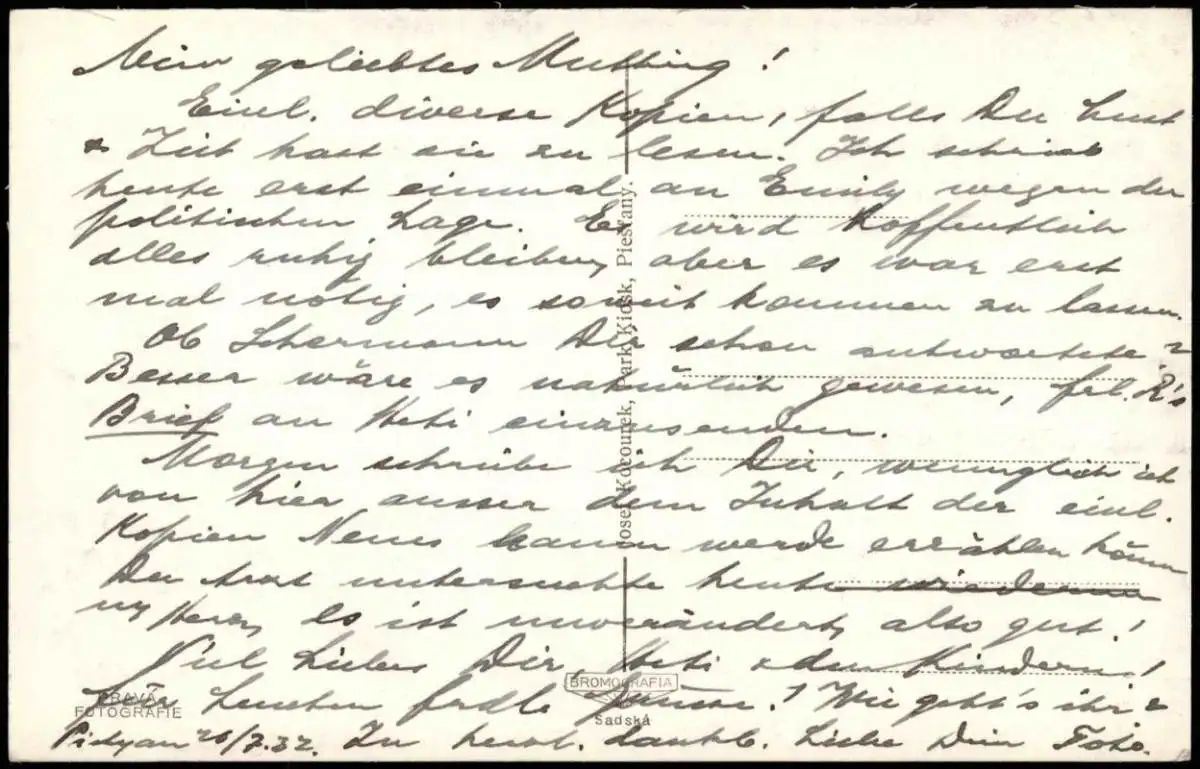 Mein geliebtes Mutting!
Einl. diverse Kopien, falls Du Lust
& Zeit hast sie zu lesen. Ich schrieb
heute erst einmal an Emily wegen der
politischen Lage. Es wird hoffentlich
alles ruhig bleiben, aber es war erst
mal nötig, es soweit kommen zu lassen.
Ob Schermann Dir schon antwortete?
Besser wäre es natürlich gewesen, frl. R's
Brief an Heti einzusenden.
Morgen schreibe ich Dir, wenngleich ich
von hier ausser dem Inhalt der einl.
Kopien Neues kaum werde erzählen könn
Der Arzt untersuchte heute wiederum
my Herz, es ist unverändert, also gut!
Viel Liebes Dir, Heti & den Kindern!
Lenchen Grüsse! Wie geht's ihr?
Pistyan 26/7.32. In herzl. dankb. Liebe Dein
Josef Kocourek, Park Kiosk, Piešťany.
PRAVÁ
FOTOGRAFIE
BROMOGRAFIA
Sadská